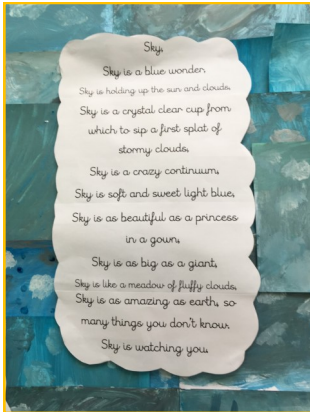 Sky,
Sky is a blue wonder.
Sky is holding up the sun and clouds,
Sky is a crystal clear cup from
which to sip a first splat of
stormy clouds,
Sky is a crazy continuum,
Sky is soft and sweet light blue,
Sky is as beautiful as a princess
in a gown,
Sky is as big as a giant,
Sky is like a meadow of fluffy clouds,
Sky is as amazing as earth, so
many things you don't know.
Sky is watching you,